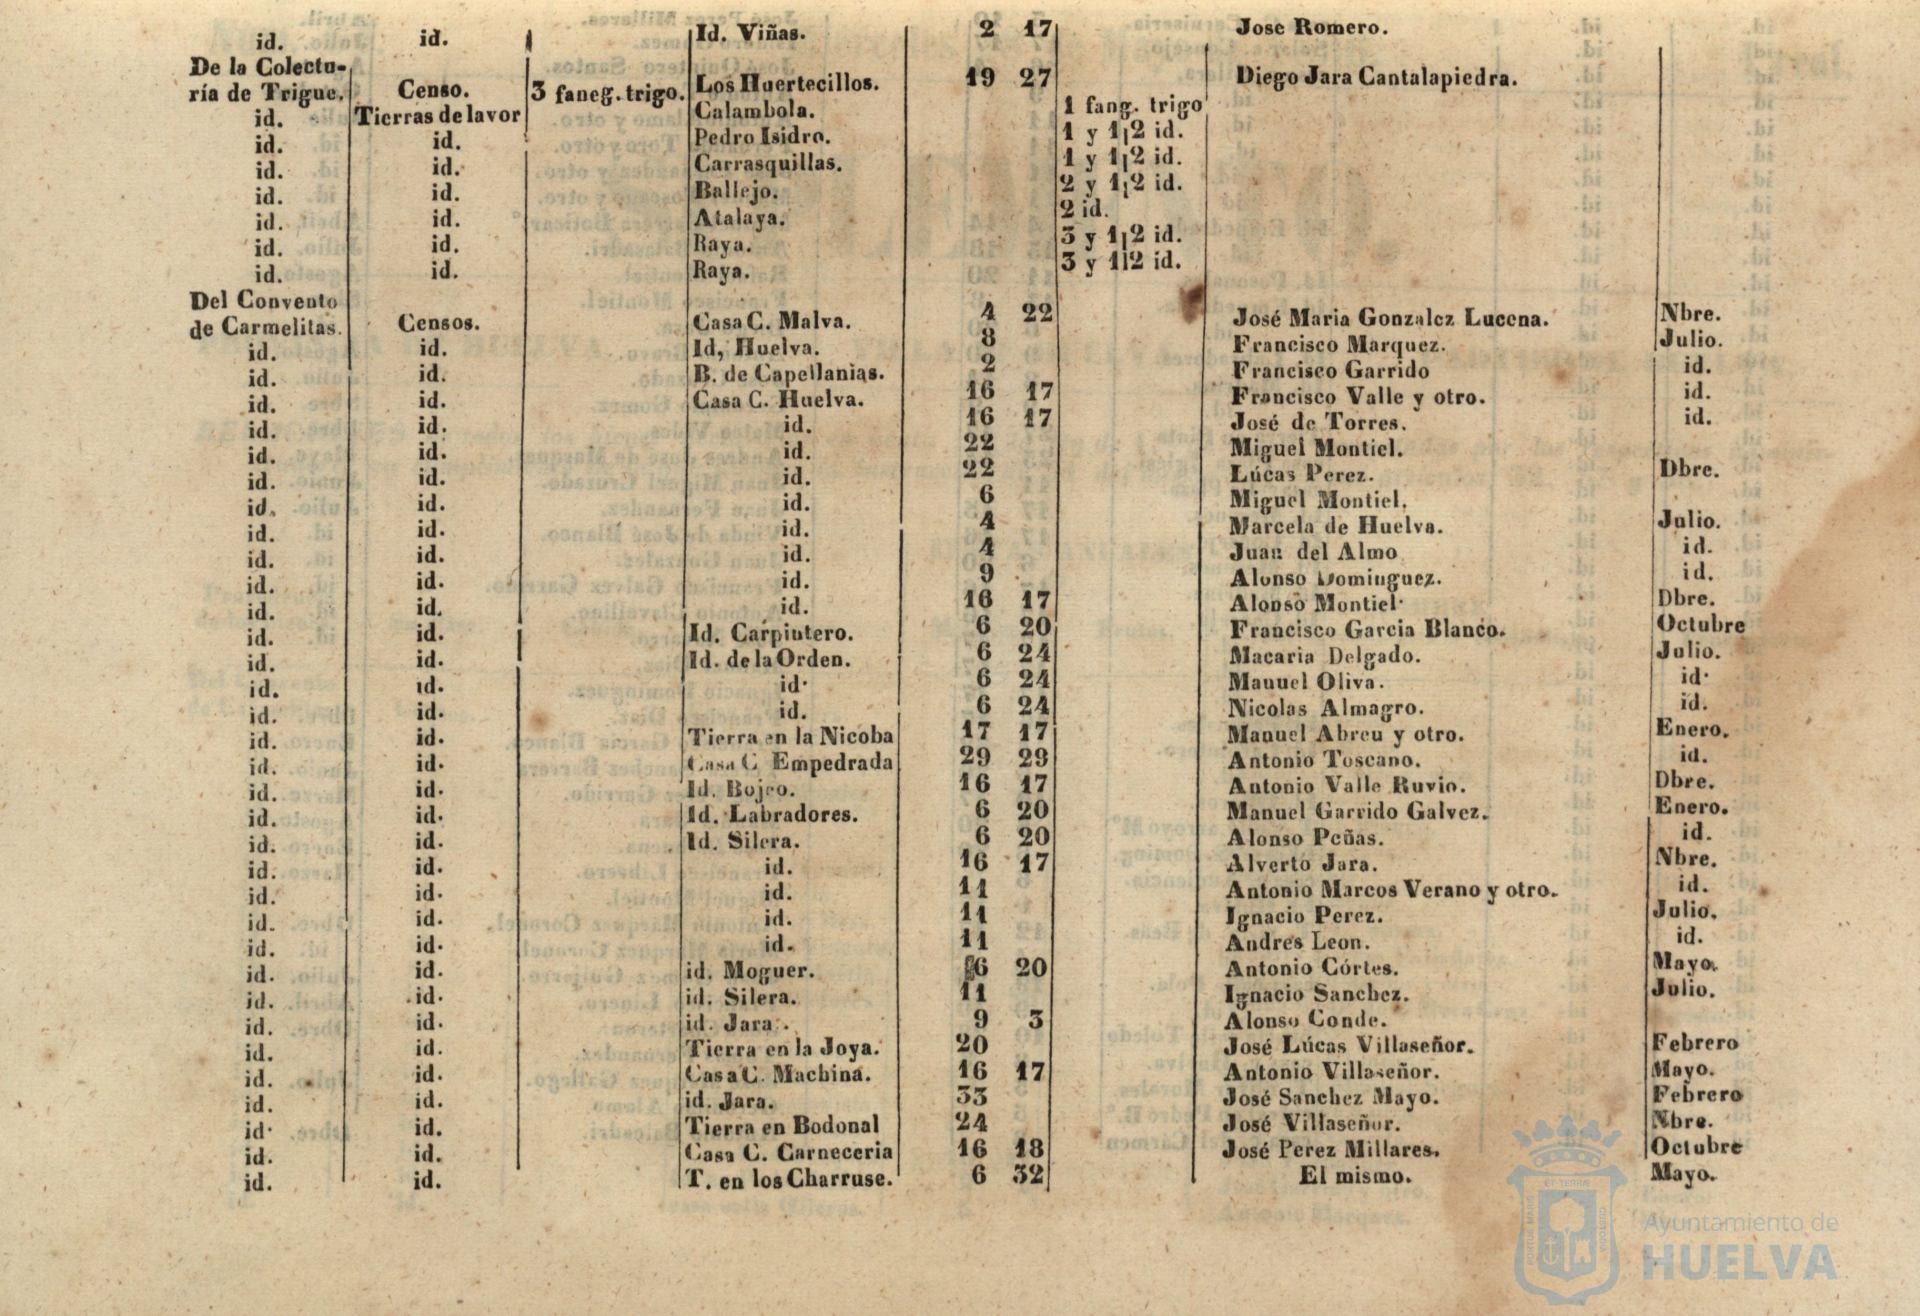 id. id. Id. Viñas. 2 17 Jose Romero.
De la Colectu-
ría de Trigue. Censo. 3 faneg. trigo. Los Huertecillos. 19 27 Diego Jara Cantalapiedra.
id. Tierras de lavor Calambola. 1 fang. trigo
id. id. Pedro Isidro. 1 y 1¡2 id.
id. id. Carrasquillas. 1 y 1¡2 id.
id. id. Ballejo. 2 y 1¡2 id.
id. id. Atalaya. 2 id.
id. id. Raya. 3 y 1¡2 id.
id. id. Raya. 3 y 1¡2 id.
Del Convento
de Carmelitas. Censos. Casa C. Malva. 4 22 José Maria Gonzalez Lucena. Nbre.
id. id. Id, Huelva. 8 Francisco Marquez. Julio.
id. id. B. de Capellanias. 2 Francisco Garrido id.
id. id. Casa C. Huelva. 16 17 Francisco Valle y otro. id.
id. id. id. 16 17 José de Torres. id.
id. id. id. 22 Miguel Montiel.
id. id. id. 22 Lúcas Perez. Dbre.
id. id. id. 6 Miguel Montiel.
id. id. id. 4 Marcela de Huelva. Julio.
id. id. id. 4 Juan del Almo id.
id. id. id. 9 Alonso Dominguez. id.
id. id. id. 16 17 Alonso Montiel. Dbre.
id. id. Id. Carpintero. 6 20 Francisco Garcia Blanco. Octubre
id. id. Id. de la Orden. 6 24 Macaria Delgado. Julio.
id. id. id. 6 24 Manuel Oliva. id.
id. id. id. 6 24 Nicolas Almagro. id.
id. id. Tierra en la Nicoba 17 17 Manuel Abreu y otro. Enero.
id. id. Casa C Empedrada 29 29 Antonio Toscano. id.
id. id. Id. Bojeo. 16 17 Antonio Valle Ruvio. Dbre.
id. id. Id. Labradores. 6 20 Manuel Garrido Galvez. Enero.
id. id. Id. Silera. 6 20 Alonso Peñas. id.
id. id. id. 16 17 Alverto Jara. Nbre.
id. id. id. 11 Antonio Marcos Verano y otro. id.
id. id. id. 11 Ignacio Perez. Julio.
id. id. id. 11 Andres Leon. id.
id. id. id. Moguer. 6 20 Antonio Córtes. Mayo.
id. id. id. Silera. 11 Ignacio Sanchez. Julio.
id. id. id. Jara. 9 3 Alonso Conde.
id. id. Tierra en la Joya. 20 José Lúcas Villaseñor. Febrero
id. id. Casa C. Machina. 16 17 Antonio Villaseñor. Mayo.
id. id. id. Jara. 33 José Sanchez Mayo. Febrero
id. id. Tierra en Bodonal 24 José Villaseñor. Nbre.
id. id. Casa C. Carneceria 16 18 José Perez Millares. Octubre
id. id. T. en los Charruse. 6 32 El mismo. Mayo.
Ayuntamiento de
HUELVA